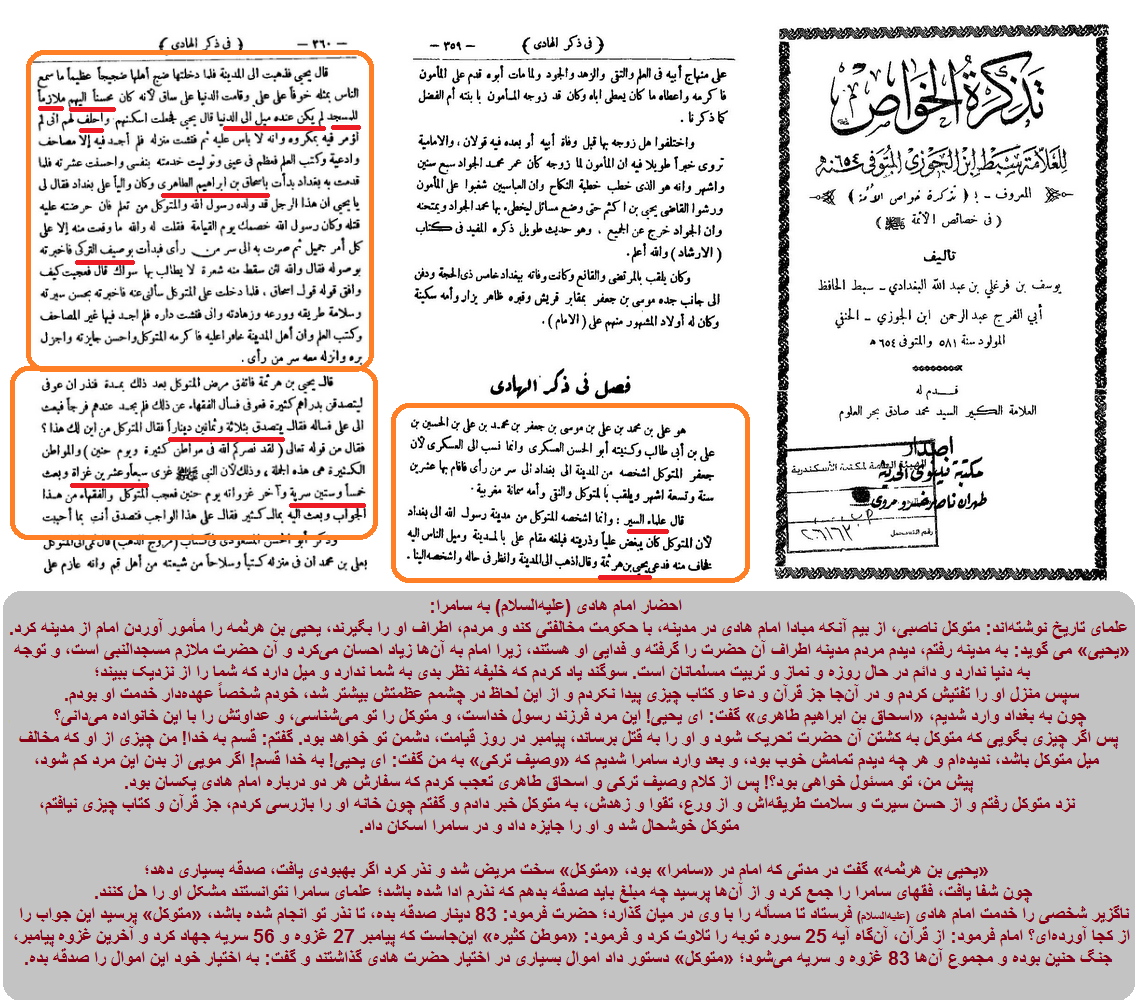 تذكرة الخواص
للعلامة سبط ابن الجوزي المتوفى سنة ٦٥٤هـ
المعروف - بـ ( تذكرة خواص الأمة )
( فى خصائص الأئمة ﷺ )
تأليف
يوسف بن فرغلي بن عبد الله البغدادي - سبط الحافظ
أبي الفرج عبد الرحمن ابن الجوزي - الحنفي
المولود سنة ٥٨١ والمتوفى ٦٥٤ هـ
قدم له
العلامة الكبير السيد محمد صادق بحر العلوم
اصدار
مكتبة نينوى الحديثة
طهران ناصر خسرو مروى
الهيئة العامة لمكتبة الأسكندرية
رقم التسجيل
( فى ذكر الهادى ) — ٣٥٩ —
على منهاج أبيه فى العلم والتقى والزهد والجود ولما مات أبوه قدم على المأمون
فاكرمه واعطاه ما كان يعطى اباه وكان قد زوجه المأمون بابنته أم الفضل
كما ذكرنا .
واختلفوا هل زوجه بها قبل وفاة أبيه أو بعده فيه قولان ، والامامية
تروى خبراً طويلا فيه ان المأمون لما زوجه كان عمر محمد الجواد سبع سنين
واشهر وانه هو الذى خطب خطبة النكاح وان العباسيين شغبوا على المأمون
ورشوا القاضى يحيى بن اكثم حتى وضع مسائل ليخطىء بها محمد الجواد ويمتحنه
وان الجواد خرج عن الجميع ، وهو حديث طويل ذكره المفيد فى كتاب
( الارشاد ) والله أعلم .
وكان يلقب بالمرتضى والقانع وكانت وفاته ببغداد خامس ذى الحجة ودفن
الى جانب جده موسى بن جعفر بمقابر قريش وقبره ظاهر يزار وأمه سكينة
وكان له أولاد المشهور منهم على ( الامام ) .
فصل فى ذكر الهادى
هو على بن محمد بن على بن موسى بن جعفر بن محمد بن على بن الحسين بن
على بن أبى طالب وكنيته أبو الحسن العسكرى وانما نسب الى العسكرى لأن
جعفر المتوكل اشخصه من المدينة الى بغداد الى سر من رأى فاقام بها عشرين
سنة وتسعة اشهر ويلقب بالمتوكل والنقى وأمه سمانة مغربية .
قال علماء السير : وانما اشخصه المتوكل من مدينة رسول الله الى بغداد
لأن المتوكل كان يبغض علياً وذريته فبلغه مقام على بالمدينة وميل الناس اليه
فخاف منه فدعى يحيى بن هرثمة وقال اذهب الى المدينة وانظر فى حاله واشخصه الينا .
( فى ذكر الهادى ) — ٣٦٠ —
قال يحيى فذهبت الى المدينة فلما دخلتها ضج أهلها ضجيجاً عظيماً ما سمع
الناس بمثله خوفاً على على وقامت الدنيا على ساق لأنه كان محسناً اليهم ملازماً
للمسجد لم يكن عنده ميل الى الدنيا قال يحيى فجعلت اسكنهم واحلف لهم انى لم
اؤمر فيه بمكروه وانه لا بأس عليه ثم فتشت منزله فلم أجد فيه إلا مصاحف
وادعية وكتب العلم فعظم فى عينى وتوليت خدمته بنفسى واحسنت عشرته فلما
قدمت به بغداد بدأت باسحاق بن ابراهيم الطاهرى وكان والياً على بغداد فقال لى
يا يحيى ان هذا الرجل قد ولده رسول الله والمتوكل من تعلم فان حرضته عليه
قتله وكان رسول الله خصمك يوم القيامة فقلت له والله ما وقعت منه إلا على
كل أمر جميل ثم صرت به الى سر من رأى فبدأت بوصيف التركى فاخبرته
بوصوله فقال والله لئن سقط منه شعرة لا يطالب بها سواك قال فعجبت كيف
وافق قوله قول اسحاق ، فلما دخلت على المتوكل سألنى عنه فاخبرته بحسن سيرته
وسلامة طريقه وورعه وزهادته وانى فتشت داره فلم اجد فيها غير المصاحف
وكتب العلم وان أهل المدينة خافوا عليه فاكرمه المتوكل واحسن جايزته واجزل
بره وانزله معه سر من رأى .
قال يحيى بن هرثمة فاتفق مرض المتوكل بعد ذلك بمدة فنذر ان عوفى
ليتصدقن بدراهم كثيرة فعوفى فسأل الفقهاء عن ذلك فلم يجد عندهم فرجاً فبعث
الى على فسأله فقال يتصدق بثلاثة وثمانين ديناراً فقال المتوكل من اين لك هذا ؟
فقال من قوله تعالى ( لقد نصركم الله فى مواطن كثيرة ويوم حنين ) والمواطن
الكثيرة هى هذه الجملة ، وذلك لأن النبى ﷺ غزى سبعاً وعشرين غزاة وبعث
خمساً وستين سرية وآخر غزواته يوم حنين فعجب المتوكل والفقهاء من هذا
الجواب وبعث اليه بمال كثير فقال على هذا الواجب فتصدق أنت بما أحببت
وذكر أبو الحسن المسعودى فى كتاب ( مروج الذهب ) قال نمى الى المتوكل
بعلى بن محمد ان فى منزله كتباً وسلاحاً من شيعته من أهل قم وانه عازم على
احضار امام هادی (علیه‌السلام) به سامرا:
علمای تاریخ نوشته‌اند: متوکل ناصبی، از بیم آنکه مبادا امام هادی در مدینه، با حکومت مخالفتی کند و مردم، اطراف او را بگیرند، یحیی بن هرثمه را مأمور آوردن امام از مدینه کرد.
«یحیی» می گوید: به مدینه رفتم، دیدم مردم مدینه اطراف آن حضرت را گرفته و فدایی او هستند، زیرا امام به آن‌ها زیاد احسان می‌کرد و آن حضرت ملازم مسجدالنبی است، و توجه
به دنیا ندارد و دائم در حال روزه و نماز و تربیت مسلمانان است. سوگند یاد کردم که خلیفه نظر بدی به شما ندارد و میل دارد که شما را از نزدیک ببیند؛
سپس منزل او را تفتیش کردم و در آن‌جا جز قرآن و دعا و کتاب چیزی پیدا نکردم و از این لحاظ در چشمم عظمتش بیشتر شد، خودم شخصاً عهده‌دار خدمت او بودم.
چون به بغداد وارد شدیم، «اسحاق بن ابراهیم طاهری» گفت: ای یحیی! این مرد فرزند رسول خداست، و متوکل را تو می‌شناسی، و عداوتش را با این خانواده می‌دانی؟
پس اگر چیزی بگویی که متوکل به کشتن آن حضرت تحریک شود و او را به قتل برساند، پیامبر در روز قیامت، دشمن تو خواهد بود. گفتم: قسم به خدا! من چیزی از او که مخالف
میل متوکل باشد، ندیده‌ام و هر چه دیدم تمامش خوب بود، و بعد وارد سامرا شدیم که «وصیف ترکی» به من گفت: ای یحیی! به خدا قسم! اگر مویی از بدن این مرد کم شود،
پیش من، تو مسئول خواهی بود؟! پس از کلام وصیف ترکی و اسحاق طاهری تعجب کردم که سفارش هر دو درباره امام هادی یکسان بود.
نزد متوکل رفتم و از حسن سیرت و سلامت طریقه‌اش و از ورع، تقوا و زهدش، به متوکل خبر دادم و گفتم چون خانه او را بازرسی کردم، جز قرآن و کتاب چیزی نیافتم،
متوکل خوشحال شد و او را جایزه داد و در سامرا اسکان داد.
«یحیی بن هرثمه» گفت در مدتی که امام در «سامرا» بود، «متوکل» سخت مریض شد و نذر کرد اگر بهبودی یافت، صدقه بسیاری دهد؛
چون شفا یافت، فقهای سامرا را جمع کرد و از آن‌ها پرسید چه مبلغ باید صدقه بدهم که نذرم ادا شده باشد؛ علمای سامرا نتوانستند مشکل او را حل کنند.
ناگزیر شخصی را خدمت امام هادی (علیه‌السلام) فرستاد تا مسأله را با وی در میان گذارد؛ حضرت فرمود: 83 دینار صدقه بده، تا نذر تو انجام شده باشد، «متوکل» پرسید این جواب را
از کجا آورده‌ای؟ امام فرمود: از قرآن، آن‌گاه آیه 25 سوره توبه را تلاوت کرد و فرمود: «موطن کثیره» این‌جاست که پیامبر 27 غزوه و 56 سریه جهاد کرد و آخرین غزوه پیامبر،
جنگ حنین بوده و مجموع آن‌ها 83 غزوه و سریه می‌شود؛ «متوکل» دستور داد اموال بسیاری در اختیار حضرت هادی گذاشتند و گفت: به اختیار خود این اموال را صدقه بده.